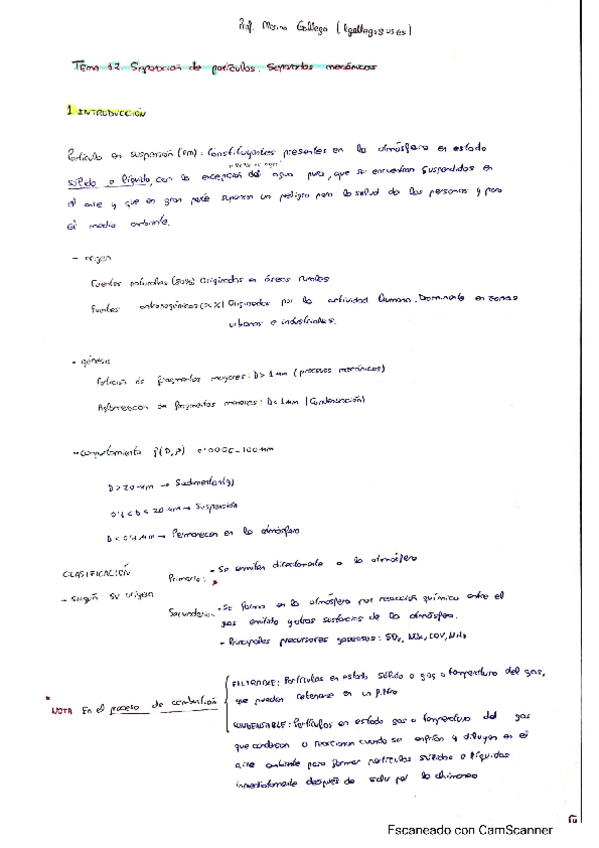 Prof. Marina Gallego (
Tema 12. Separación de partículas. Separadores mecánicos
1 INTRODUCCIÓN
Partícula en suspensión (PM): Constituyentes presentes en la atmósfera en estado
sólido o líquido, con la excepción del agua pura, que se encuentran suspendidos en
el aire y que en gran parte suponen un peligro para la salud de las personas y para
el medio ambiente.
- origen
Fuentes naturales Originadas en áreas rurales
Fuentes antropogénicas Originadas por la actividad humana. Dominante en zonas
urbanas e industriales.
- génesis
Partición de fragmentos mayores: D > 1 μm (procesos mecánicos)
de fragmentos menores: D < 1 μm (Condensación)
- comportamiento f(D,ρ) - 100 μm
D > 20 μm → Sedimentan (g)
0'1 < D < 20 μm → Suspensión
D < 0'1 μm → Permanecen en la atmósfera
CLASIFICACIÓN
- Según su origen
Primaria: - Se emiten directamente a la atmósfera
Secundaria: - Se forma en la atmósfera por reacción química entre el
gas emitido y otras sustancias de la atmósfera.
- Principales precursores gaseosos: SO₂, NOx, COV, NH₃
* NOTA En el proceso de combustión
FILTRABLE: Partículas en estado sólido o gas a temperatura del gas,
que pueden retenerse en un filtro
CONDENSABLE: Partículas en estado gas a temperatura del gas
que condensan o reaccionan cuando se enfrían y diluyen en el
aire ambiente para formar partículas sólidas o líquidas
inmediatamente después de salir por la chimenea
Escaneado con CamScanner